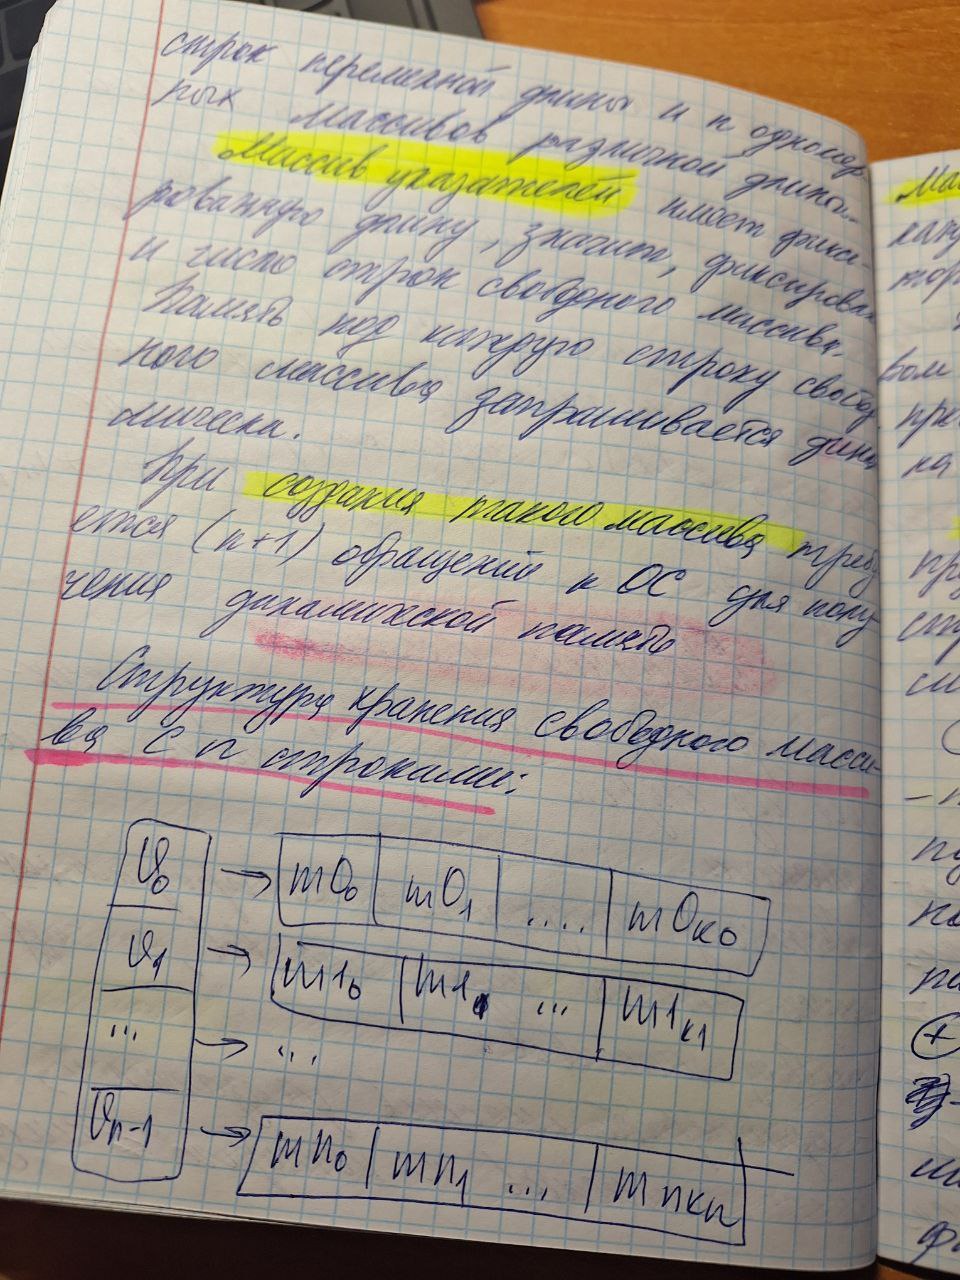 строк переменной длины и n одномер
ных массивов различной длины.
Массив указателей имеет фикси-
рованную длину, значит, фиксирован
и число строк свободного массива.
Память под каждую строку свобод
ного массива запрашивается дина
мически.
При создания такого массива требу
ется (n+1) обращений к ОС для полу
чения динамической памяти
Структура хранения свободного масси-
ва с n строками:
v0 → m00 m01 .... m0k0
v1 → m10 m11 ... m1k1
... → ...
vn-1 → mn0 mn1 ... mnkn